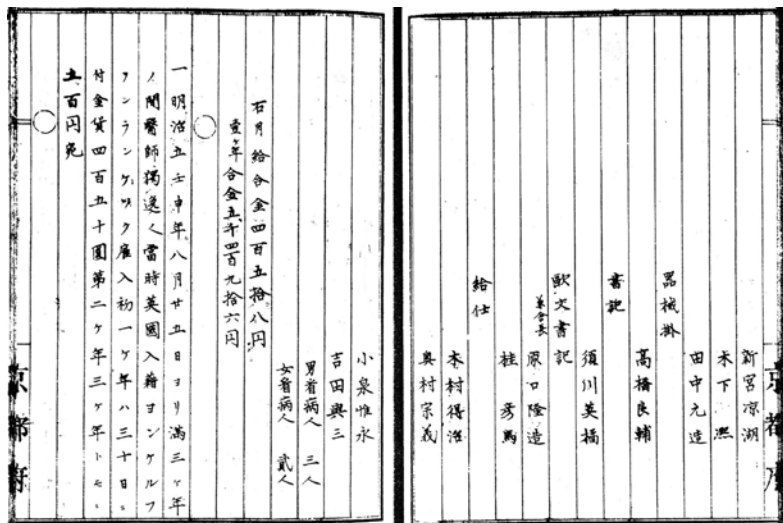 新宮凉湖
木下凞
田中元造
器械掛
高橋良輔
書記
須川英橘
歐文書記
兼舎長
原口隆造
桂彦馬
給仕
木村得治
奥村宗義
京都府
小泉惟永
吉田興三
男看病人 三人
女看病人 貳人
右月給合金四百五拾八円
壹ヶ年合金五千四百九拾六円
一明治五壬申年八月廿五日ヨリ満三ヶ年
ノ間醫師獨逸人當時英國入籍ヨンケルフ
ヲンランゲック雇入初一ヶ年ハ三十日ニ
付金貨四百五十圓第二ヶ年三ヶ年トモニ
五百円宛
京都府